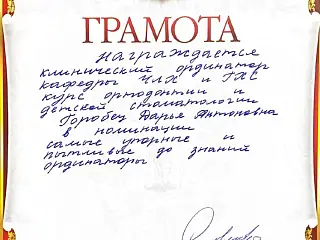 ГРАМОТА
Награждается
клинический ординатор
кафедры ЧЛХ и ГХС
курс ортодонтии и
детской стоматологии
Горобец Дарья Антоновна
в номинации
самые упорные и
пытливые до знаний
ординаторы